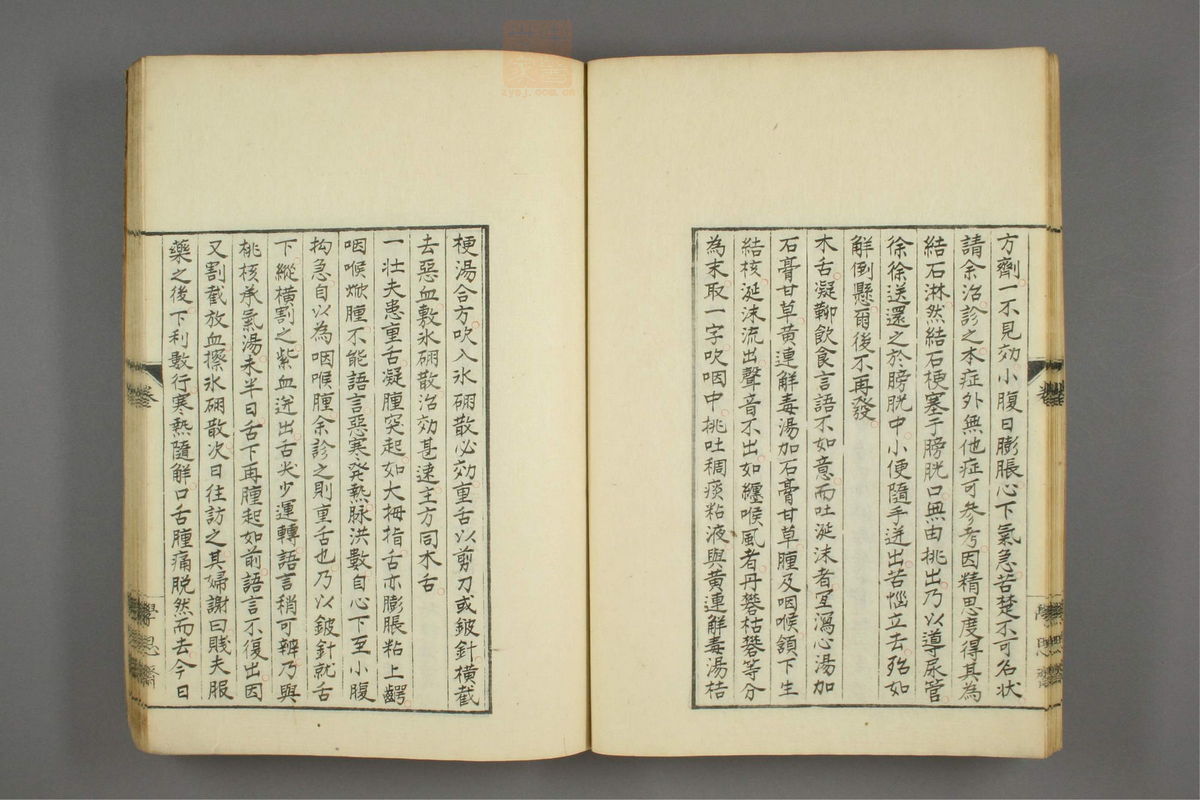 方劑一不見効小腹日膨脹心下氣急苦楚不可名状
請余治診之本症外無他症可參考因精思度得其為
結石淋然結石梗塞于膀胱口無由挑出乃以導尿管
徐徐送還之於膀胱中小便隨手迸出苦惱立去殆如
解倒懸爾後不再發
木舌凝鞕飲食言語不如意而吐涎沫者宜瀉心湯加
石膏甘草黄連解毒湯加石膏甘草腫及咽喉頷下生
結核涎沫流出聲音不出如纏喉風者丹礬枯礬等分
為末取一字吹咽中挑吐稠痰粘液與黄連解毒湯桔
梗湯合方吹入氷硼散必効重舌以剪刀或鈹針横截
去惡血敷氷硼散治効甚速主方同木舌
一壮夫患重舌凝腫突起如大拇指舌亦膨脹粘上齶
咽喉焮腫不能語言惡寒発熱脉洪數自心下至小腹
拘急自以為咽喉腫余診之則重舌也乃以鈹針就舌
下縱横割之紫血迸出舌尖少運轉語言稍可辨乃與
桃核承氣湯未半日舌下再腫起如前語言不復出因
又割截放血擦氷硼散次日往訪之其婦謝曰賤夫服
藥之後下利數行寒熱隨解口舌腫痛脱然而去今日
卷
學思齋
zysj.com.cn